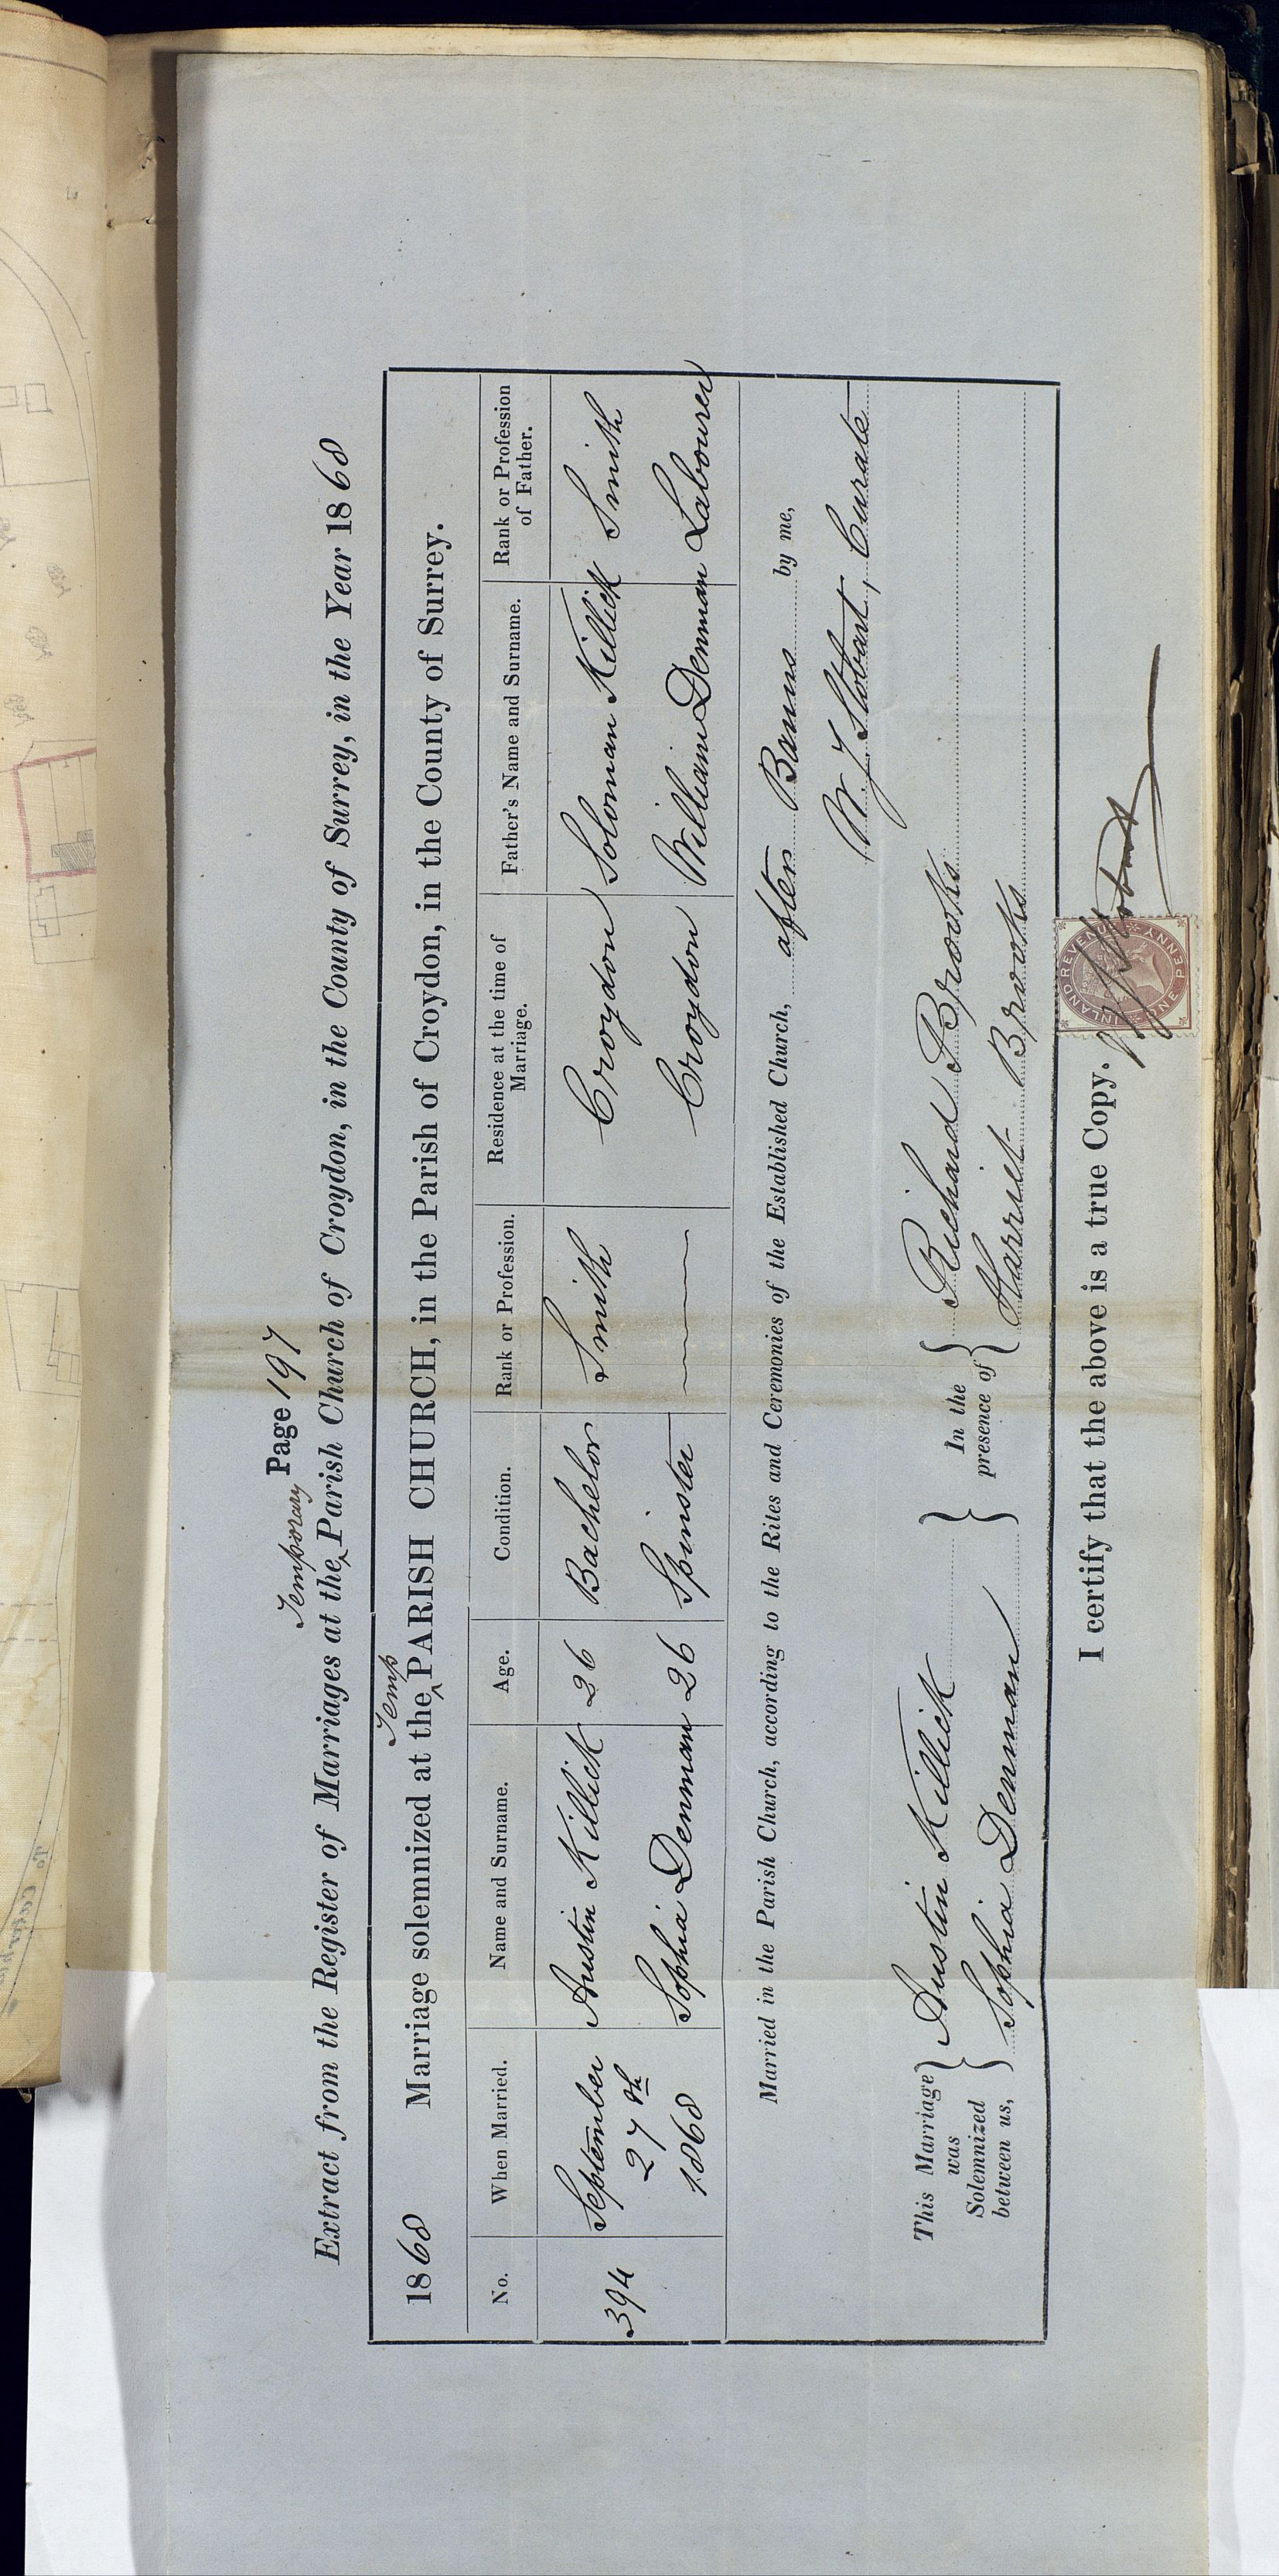 Page 197
Temporary
Extract from the Register of Marriages at the ‸ Parish Church of Croydon, in the County of Surrey, in the Year 1868
Temp
1868 Marriage solemnized at the ‸ PARISH CHURCH, in the Parish of Croydon, in the County of Surrey.
No. When Married. Name and Surname. Age. Condition. Rank or Profession. Residence at the time of Marriage. Father's Name and Surname. Rank or Profession of Father.
394 September 27th 1868 Austin Killick 26 Bachelor Smith Croydon Soloman Killick Smith
Sophia Denman 26 Spinster — Croydon William Denman Labourer
Married in the Parish Church, according to the Rites and Ceremonies of the Established Church, after Banns by me,
W. J. Stobart, Curate
This Marriage was Solemnized between us, { Austin Killick } In the presence of { Richard Brooks
Sophia Denman Harriet Brooks
I certify that the above is a true Copy.
INLAND REVENUE
ONE PENNY